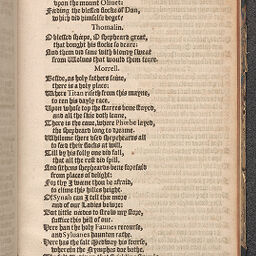 upon the mount Oliuet:
Feeding the blessed flocke of Dan,
which did himselfe beget?
Thomalin.
O blessed sheepe, O shepheard great,
that bought his flocke so deare:
And them did saue with bloudy sweat
from Wolues that would them teare.
Morrell.
Beside, as holy fathers saine,
there is a holy place:
Where Titan riseth from this mayne,
to ren his dayly race.
Upon whose top the starres bene stayed,
and all the skie doth leane,
There is the caue, where Phœbe layed,
the shepheard long to dreame.
Whilome there vsed shepheards all
to feed their flocks at will,
Till by his folly one did fall,
that all the rest did spill.
And sithens shepheards bene foresaid
from places of delight:
For thy I weene thou be afraid,
to clime this hilles height.
Of Synah can I tell thee more
and of our Ladies bowre:
But little needes to strow my store,
suffice this hill of our.
Here han the holy Faunes recourse,
and Syluanes haunten rathe.
Here has the salt Medway his sourse,
wherein the Nymphes doe bathe.